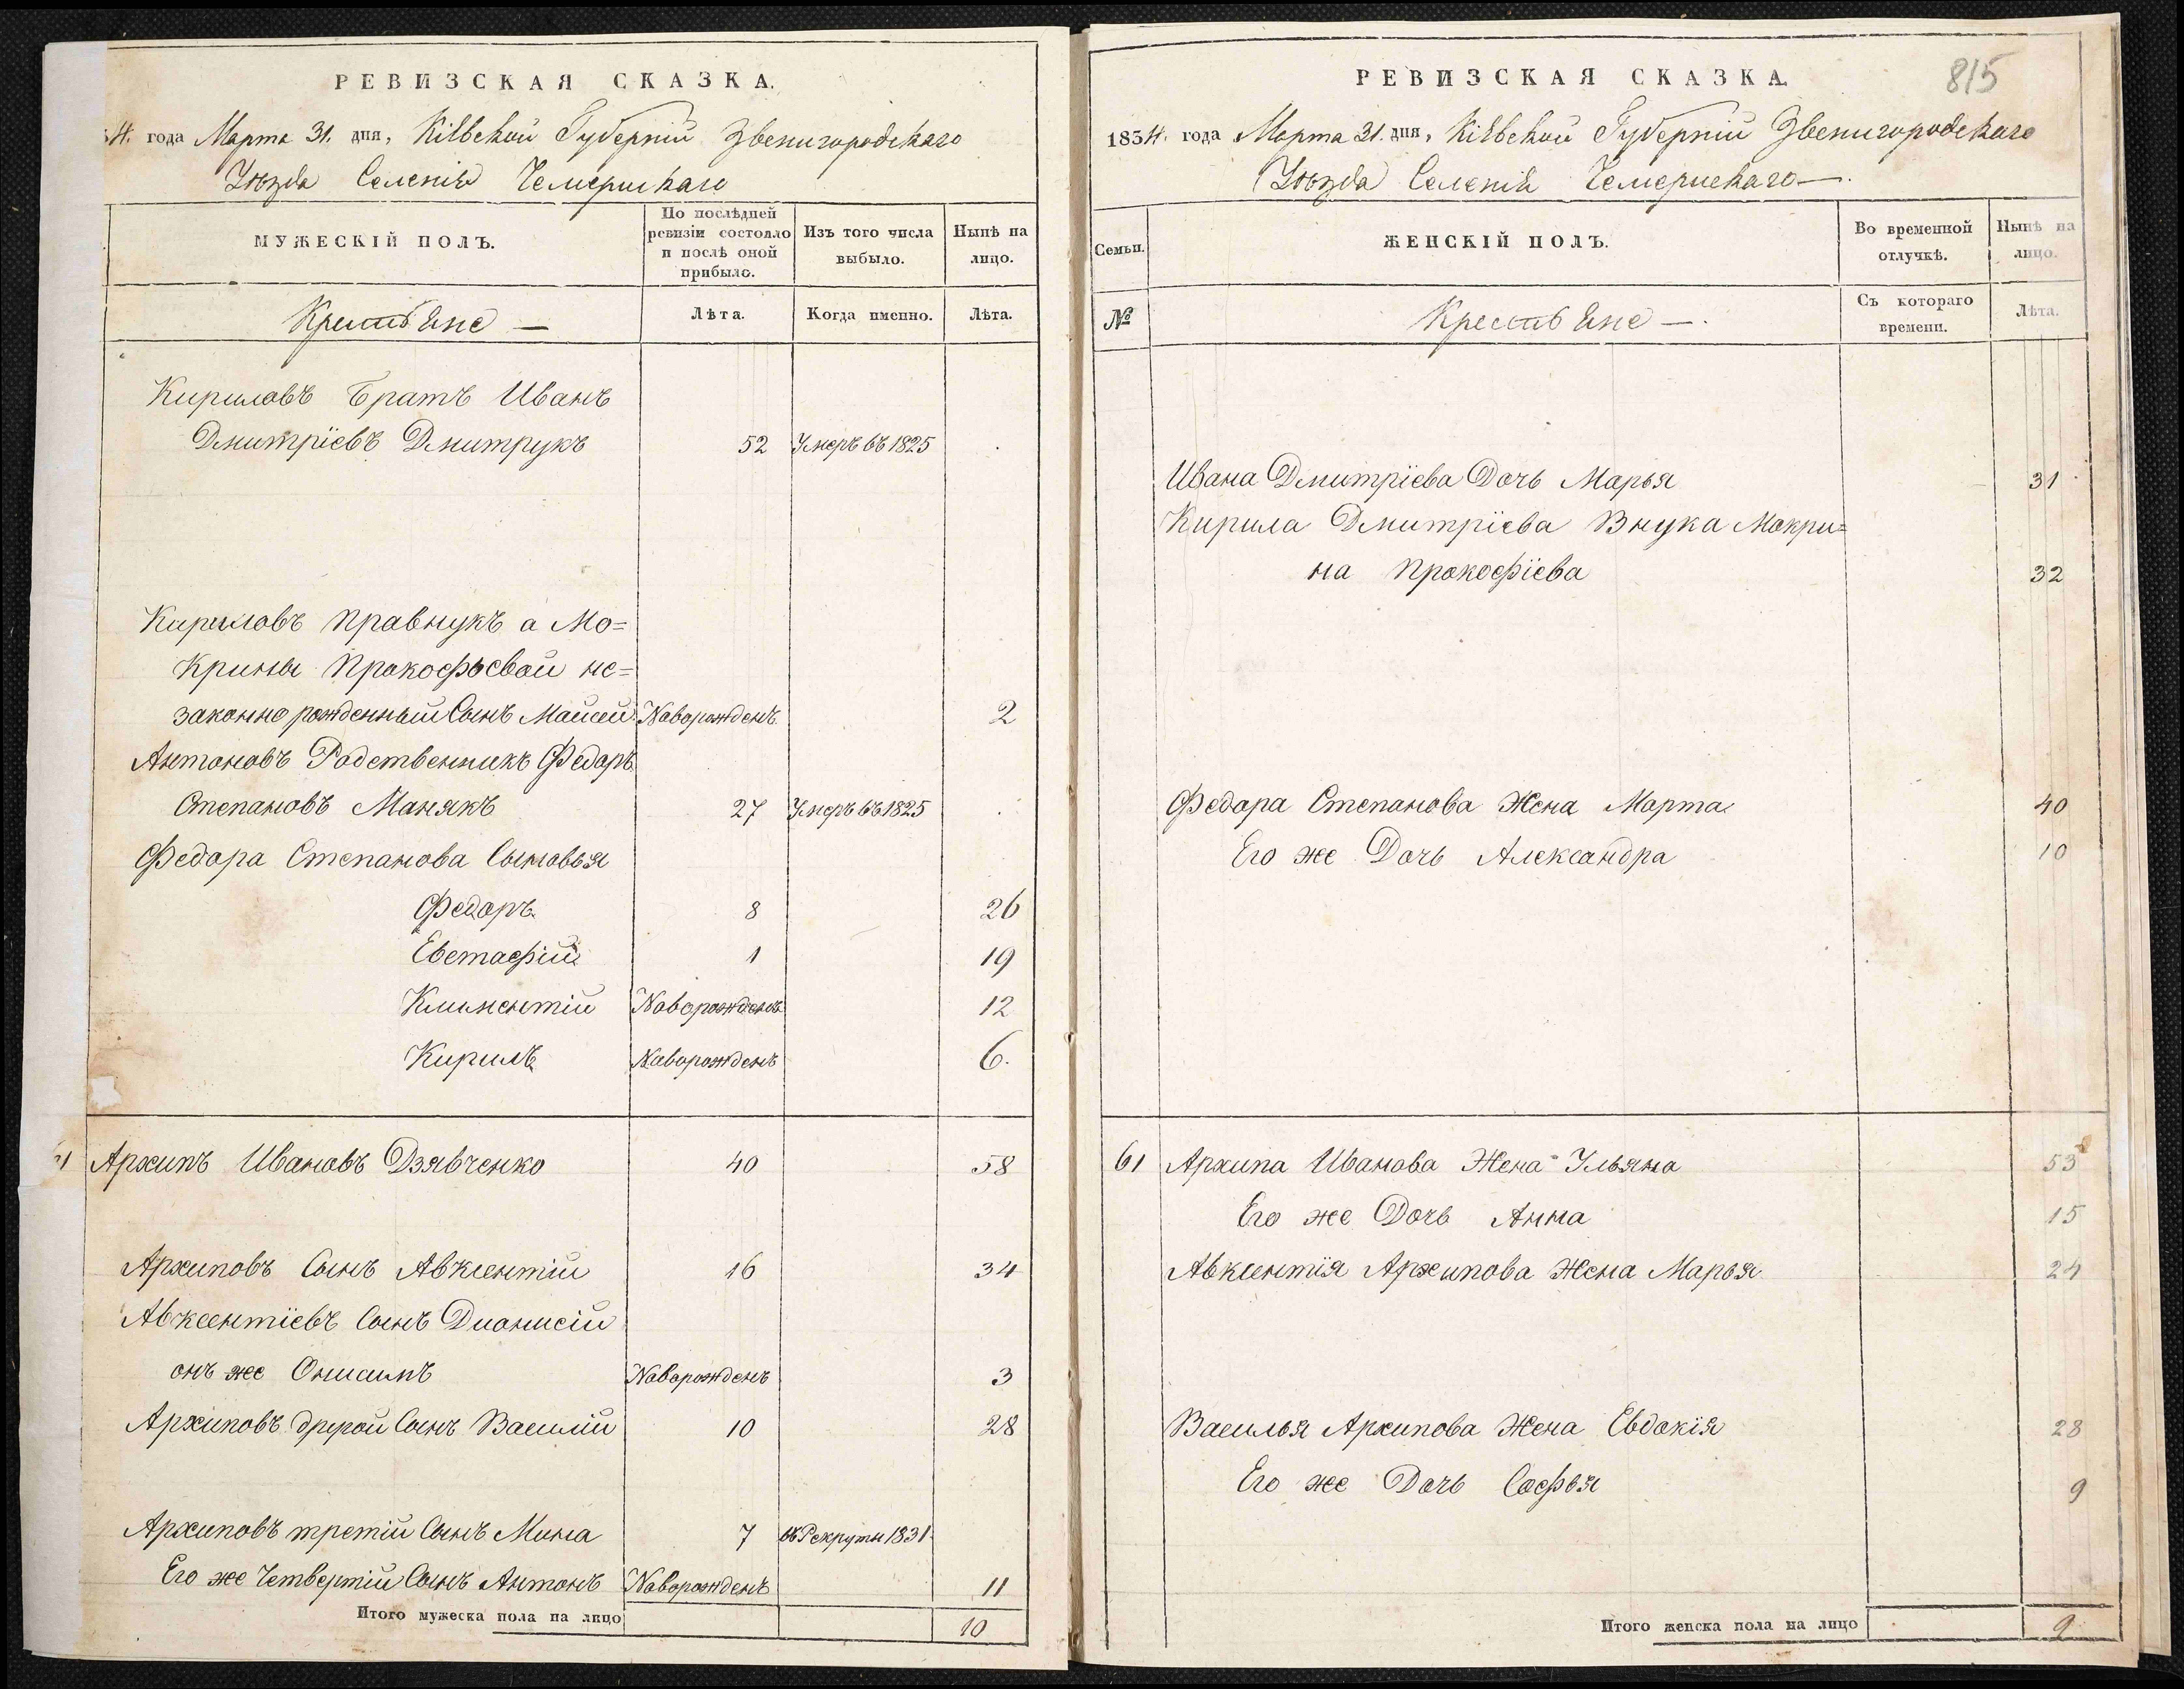 РЕВИЗСКАЯ СКАЗКА.
4. года Марта 31. дня, Кіевской Губерніи Звенигородскаго
Уѣзда Селенія Чемерискаго
МУЖЕСКІЙ ПОЛЪ.
По послѣдней ревизіи состояло и послѣ оной прибыло.
Изъ того числа выбыло.
Нынѣ на лицо.
Крестьяне —
Лѣта.
Когда именно.
Лѣта.
Кириловъ Братъ Иванъ
Дмитріевъ Дмитрукъ 52 Умеръ въ 1825
Кириловъ правнукъ а Мо=
крины Прокофьевой не=
законно рожденный Сынъ Майсей Новорожденъ 2
Антоновъ Родственникъ Федоръ
Степановъ Манякъ 27 Умеръ въ 1825
Федора Степанова Сыновья
Федоръ 8 26
Евстафій 1 19
Климентій Новорожденъ 12
Кирилъ Новорожденъ 6.
Архипъ Ивановъ Дзявченко 40 58
Архиповъ Сынъ Авксентій 16 34
Авксентіевъ Сынъ Дионисій
онъ же Онисимъ Новорожденъ 3
Архиповъ другой Сынъ Василій 10 28
Архиповъ третій Сынъ Мина 7 въ Рекруты 1831
Его же Четвертій Сынъ Антонъ Новорожденъ 11
Итого мужеска пола на лицо 10
РЕВИЗСКАЯ СКАЗКА.
815
1834. года Марта 31. дня, Кіевской Губерніи Звенигородскаго
Уѣзда Селенія Чемерискаго —.
Семьи.
ЖЕНСКІЙ ПОЛЪ.
Во временной отлучкѣ.
Нынѣ на лицо.
№
Крестьяне —.
Съ котораго времени.
Лѣта.
Ивана Дмитріева Дочь Марья 31
Кирила Дмитріева Внука Мокри=
на Прокофіева 32
Федора Степанова Жена Марта 40
Его же Дочь Александра 10
61 Архипа Иванова Жена Ульяна 53
Его же Дочь Анна 15
Авксентія Архипова Жена Марья 24
Василья Архипова Жена Евдокія 28
Его же Дочь Софья 9
Итого женска пола на лицо 9